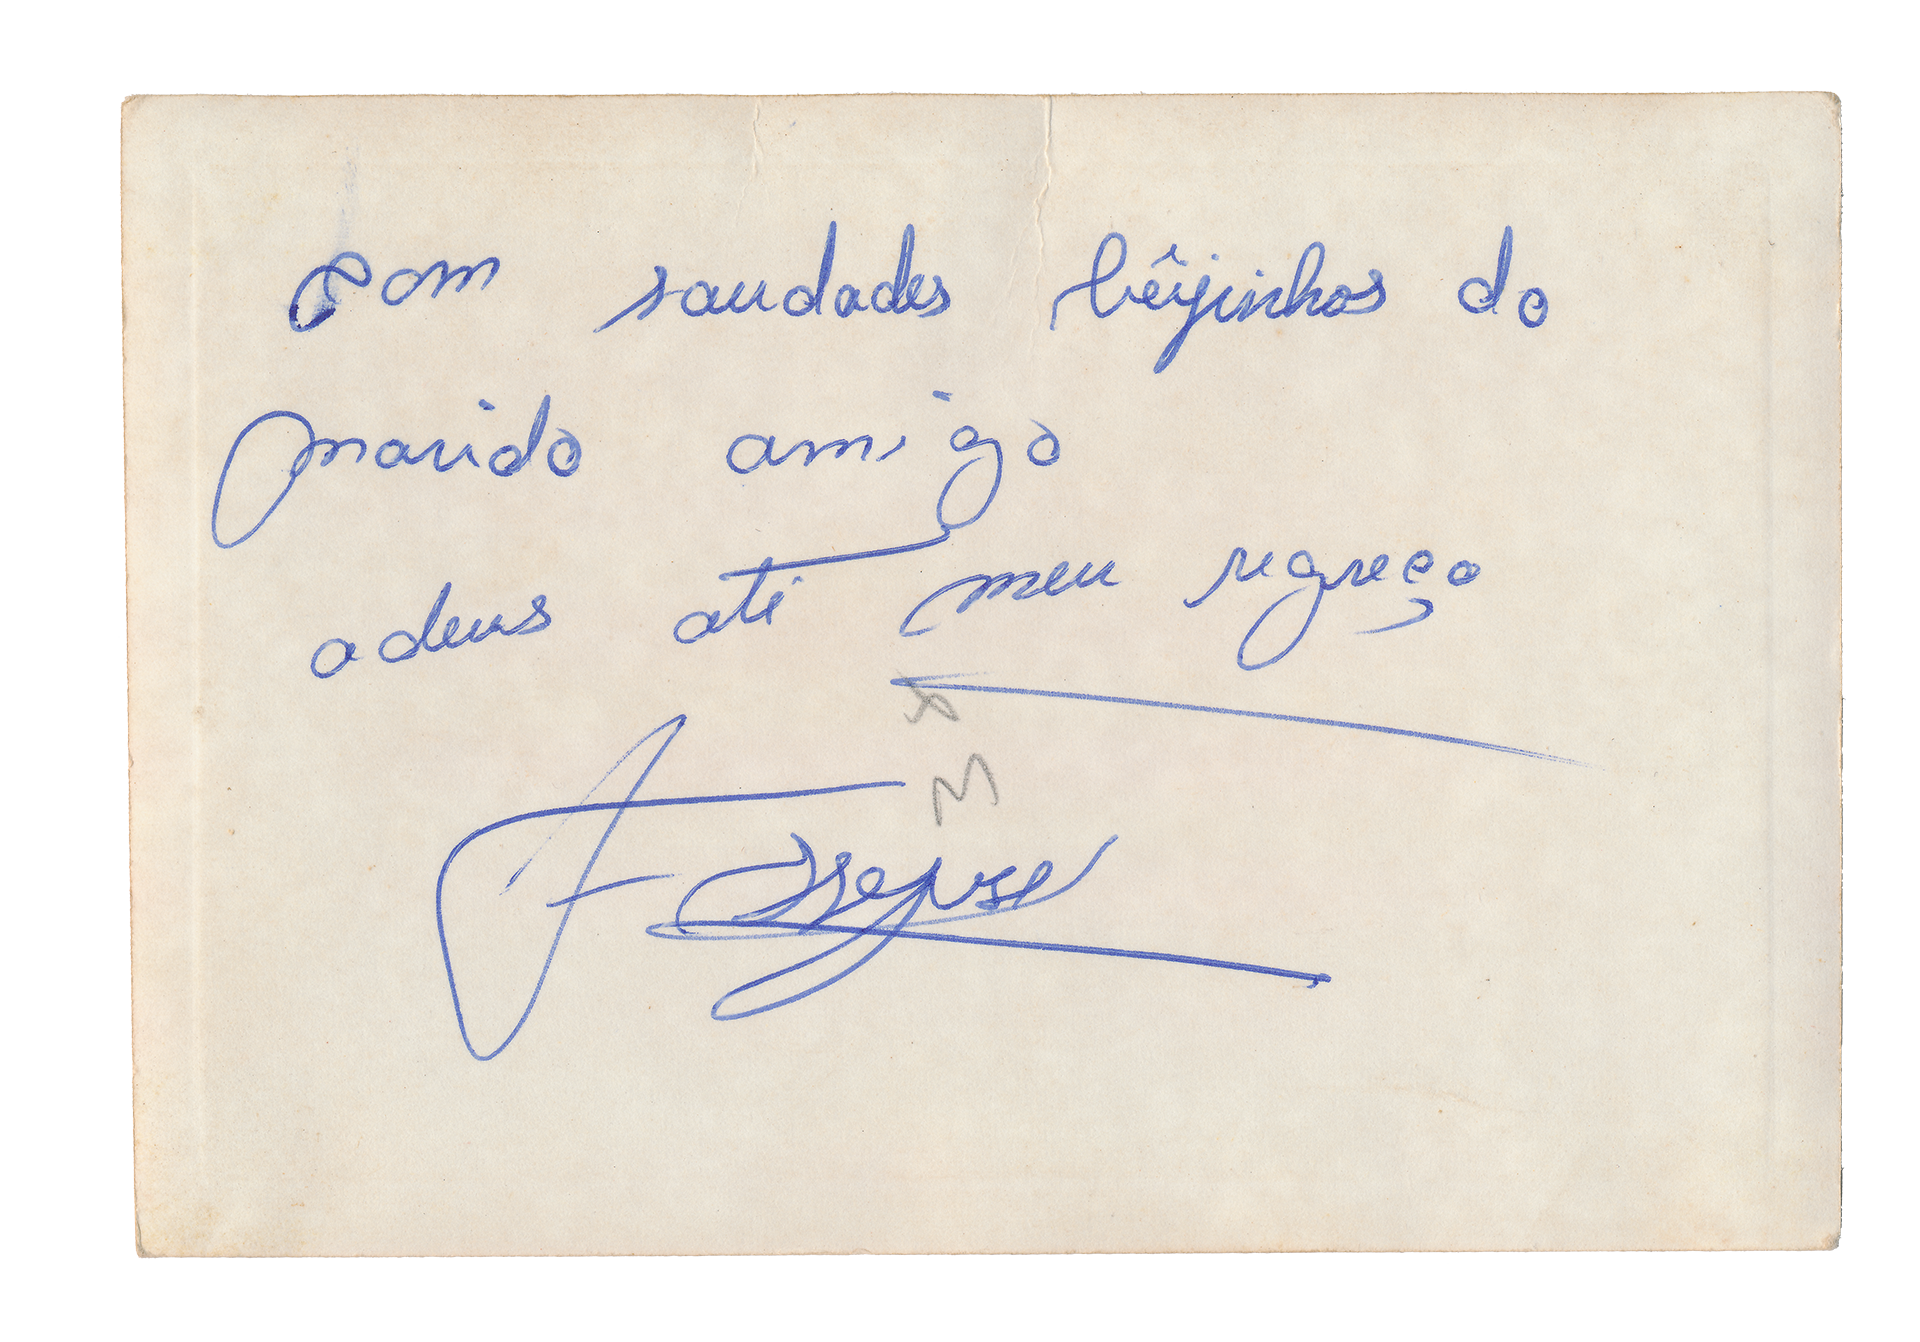 Com saudades bêijinhos do
marido amigo
adeus até meu regreço